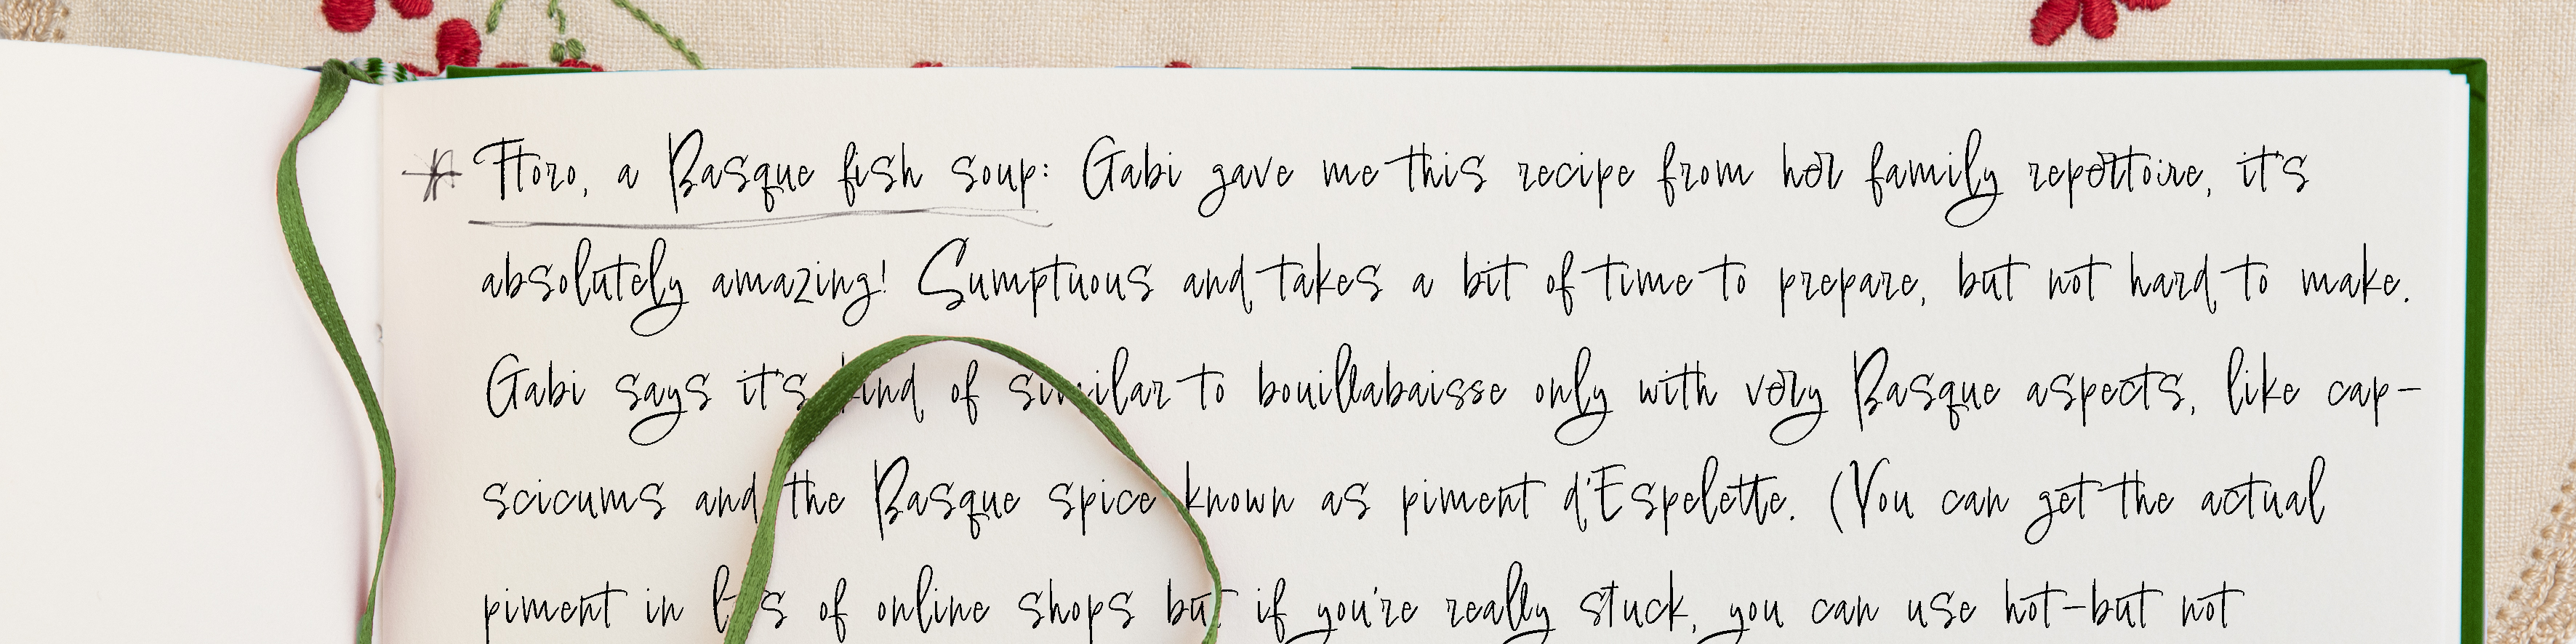 * Ttoro, a Basque fish soup: Gabi gave me this recipe from her family repertoire, it's
absolutely amazing! Sumptuous and takes a bit of time to prepare, but not hard to make.
Gabi says it's kind of similar to bouillabaisse only with very Basque aspects, like cap-
scicums and the Basque spice known as piment d'Espelette. (You can get the actual
piment in lots of online shops but if you're really stuck, you can use hot-but not